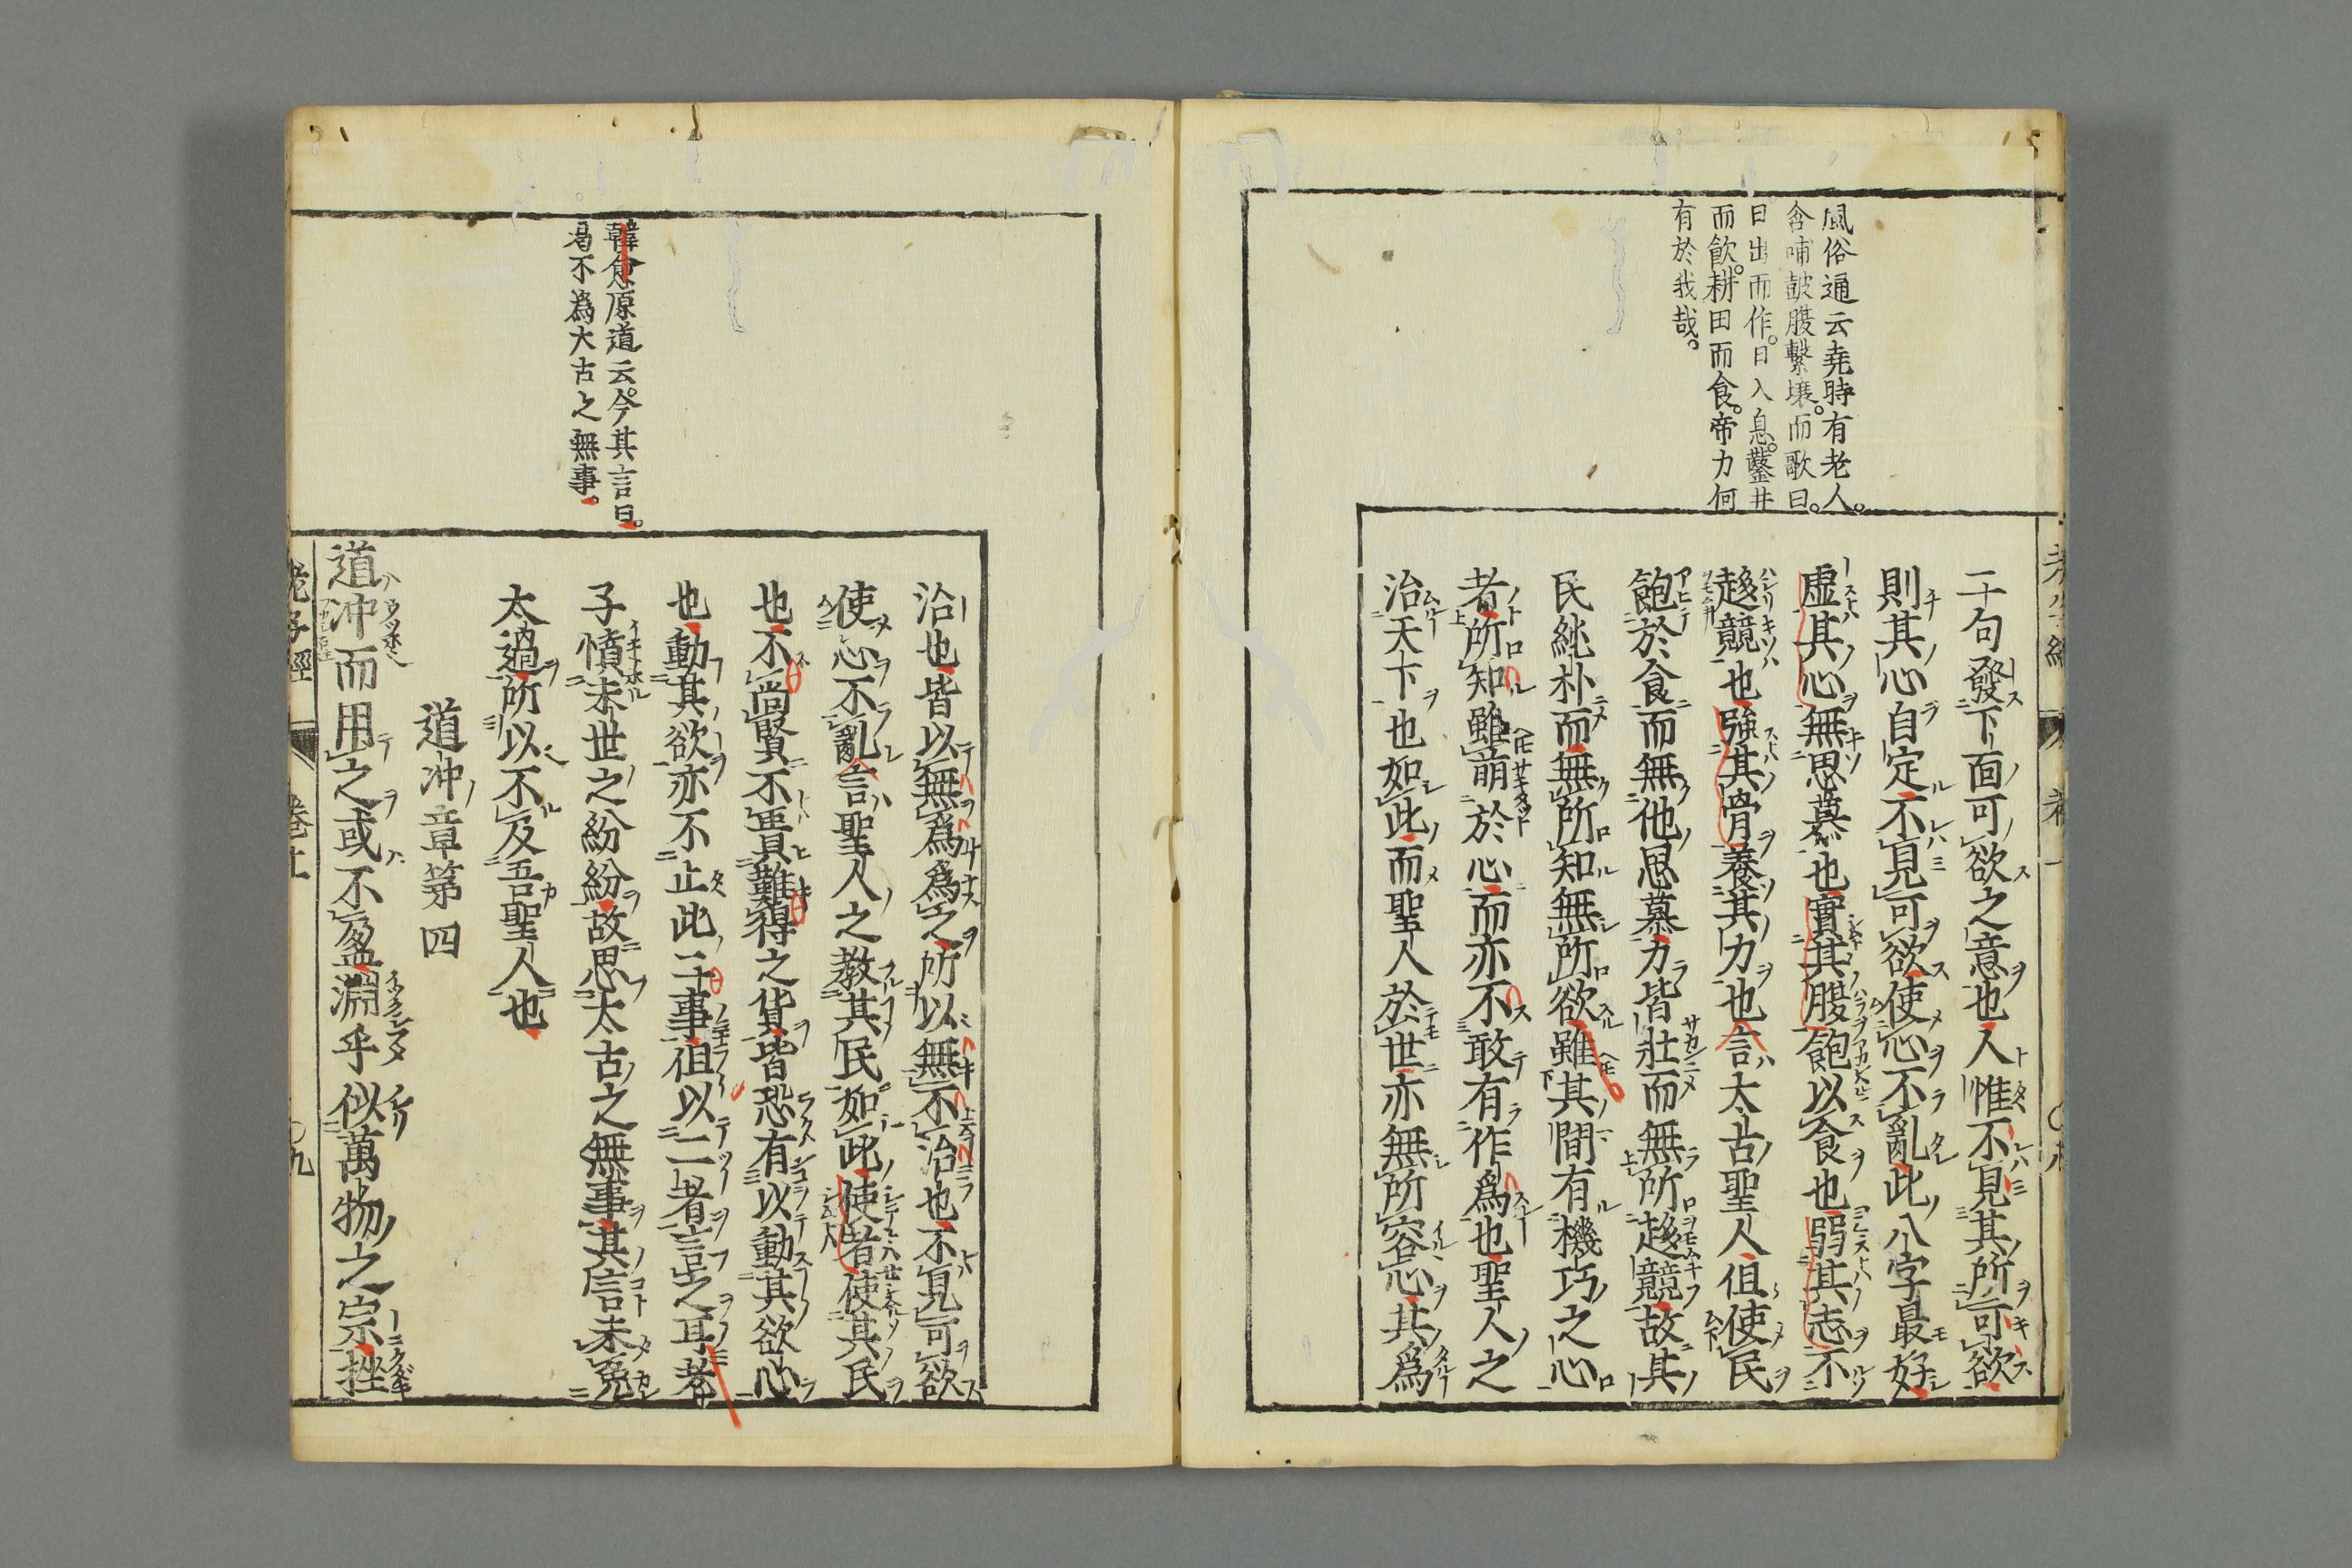 風俗通云堯時有老人。
含哺皷腹擊壤。而歌曰。
日出而作。日入息。鑿井
而飲。耕田而食。帝力何
有於我哉。
二句發下面可欲之意也人惟不見其所可欲
則其心自定不見可欲使心不亂此八字最好
虛其心無思慕也實其腹飽以食也弱其志不
趍競也強其骨養其力也言太古聖人但使民
飽於食而無他思慕力皆壯而無所趍競故其
民純朴而無所知無所欲雖其間有機巧之心
者所知雖萌於心而亦不敢有作爲也聖人之
治天下也如此而聖人於世亦無所容心其爲
韓愈原道云。今其言曰。
曷不為太古之無事。
治也皆以無爲爲之所以無不治也不見可欲
使心不亂言聖人之教其民如此使者使其民
也不尚賢不貴難得之貨皆恐有以動其欲心
也動其欲亦不止此二事但以二者言之耳老
子憤末世之紛紛故思太古之無事其言未免
太過所以不及吾聖人也
道冲章第四
道冲而用之或不盈淵乎似萬物之宗挫
老子經 卷上 〇九